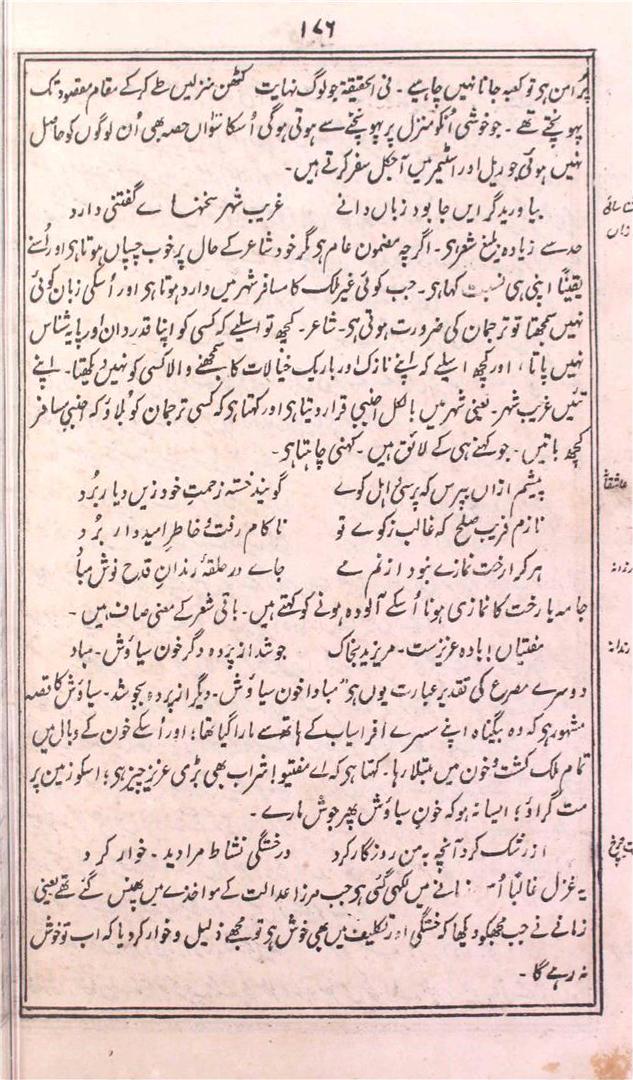 ۱۷۶
پُر امن ہو تو کعبہ جانا نہیں چاہیے ۔ فی الحقیقۃ جو لوگ نہایت کٹھن منزلیں طے کر کے مقام مقصود تک
پہونچتے تھے ۔ جو خوشی اُنکو منزل پر پہونچنے سے ہوتی ہوگی اُسکا سَواں حصہ بھی اُن لوگوں کو حاصل
نہیں ہوئی جو ریل اور اسٹیمر میں آجکل سفر کرتے ہیں۔
بیاورید گر ایں جا بود زباں دانے غریب شہر سخنہا ے گفتنی دارد
حد سے زیادہ بلیغ شعر ہی ۔ اگرچہ مضمون عام ہو مگر خود شاعر کے حال پر خوب چسپاں ہوتا ہو اور اُسنے
یقیناً اپنی ہی نسبت کہا ہو ۔ جب کوئی غیر ملک کا مسافر شہر میں وارد ہوتا ہو اور اُسکی زبان کوئی
نہیں سمجھتا تو ترجمان کی ضرورت ہوتی ہو ۔ شاعر ۔ کچھ تو اسلیے کہ کسی کو اپنا قدردان اور پایہ شناس
نہیں پاتا ، اور کچھ اسلیے کہ اپنے نازک اور باریک خیالات کا سمجھنے والا کسی کو نہیں دیکھتا ۔ اپنے
تئیں غریب شہر ۔ یعنی شہر میں بالکل اجنبی قرار دیتا ہو اور کہتا ہو کہ کسی ترجمان کو بُلاؤ کہ اجنبی مسافر
کچھ باتیں ۔ جو کہنے ہی کے لائق ہیں ۔ کہنی چاہتا ہو ۔
عاشقانہ
پیشم ازاں بپرس کہ پرسی و اہل کوے گویند خستہ زحمتِ خود زیں دیار بُرد
نازم فریب صلح کہ غالب ز کوے تو ناکام رفت و خاطرِ امیدوار بُرد
رندانہ
ہر کرا رخت نمازے نبود از نم مے جاے در حلقۂ رندانِ قدح نوش مباد
جامہ یا رخت کا نمازی ہونا اُسکے آلودہ ہونے کو کہتے ہیں ۔ باقی شعر کے معنی صاف ہیں ۔
رندانہ
مفتیاں ! بادہ عزیزست ۔ مریزید بخاک جوشد از پردہ دگر خون سیاوُش ۔ مباد
دوسرے مصرع کی تقدیر عبارت یوں ہو " مبادا خون سیاوُش ۔ دیگر از پردہ بجوشد ۔ سیاوُش کا قصہ
مشہور ہو کہ وہ بیگناہ اپنے سسرے افراسیاب کے ہاتھ سے مارا گیا تھا ؛ اور اُسکے خون کے وبال میں
تمام ملک کشت و خون میں مبتلا رہا ۔ کہتا ہو کہ اے مفتیو ! شراب بھی بڑی عزیز چیز ہو ؛ اسکو زمین پر
مت گراؤ ؛ ایسا نہ ہو کہ خونِ سیاوُش پھر جوش مارے ۔
از رشک کرد آنچہ بہ من روزگار کرد در خستگی نشاط مرا دید ۔ خوار کرد
یہ غزل غالباً اُس زمانے میں لکھی گئی ہو جب مرزا عدالت کے مواخذے میں پھنس گئے تھے یعنی
زمانے نے جب مجھکو دیکھا کہ خستگی اور تکلیف میں بھی خوش ہو تو مجھے ذلیل و خوار کر دیا کہ اب تو خوش
نہ رہے گا ۔